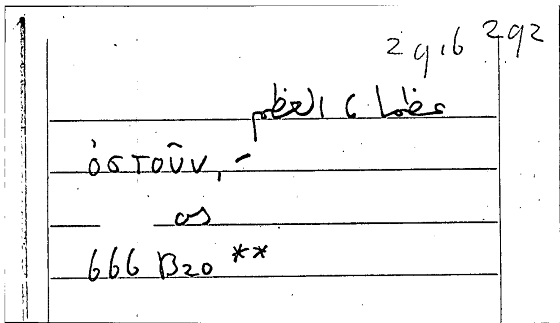 2916 292
عظما ، العظم
ὀστοῦν, -
ας
666 B20 **